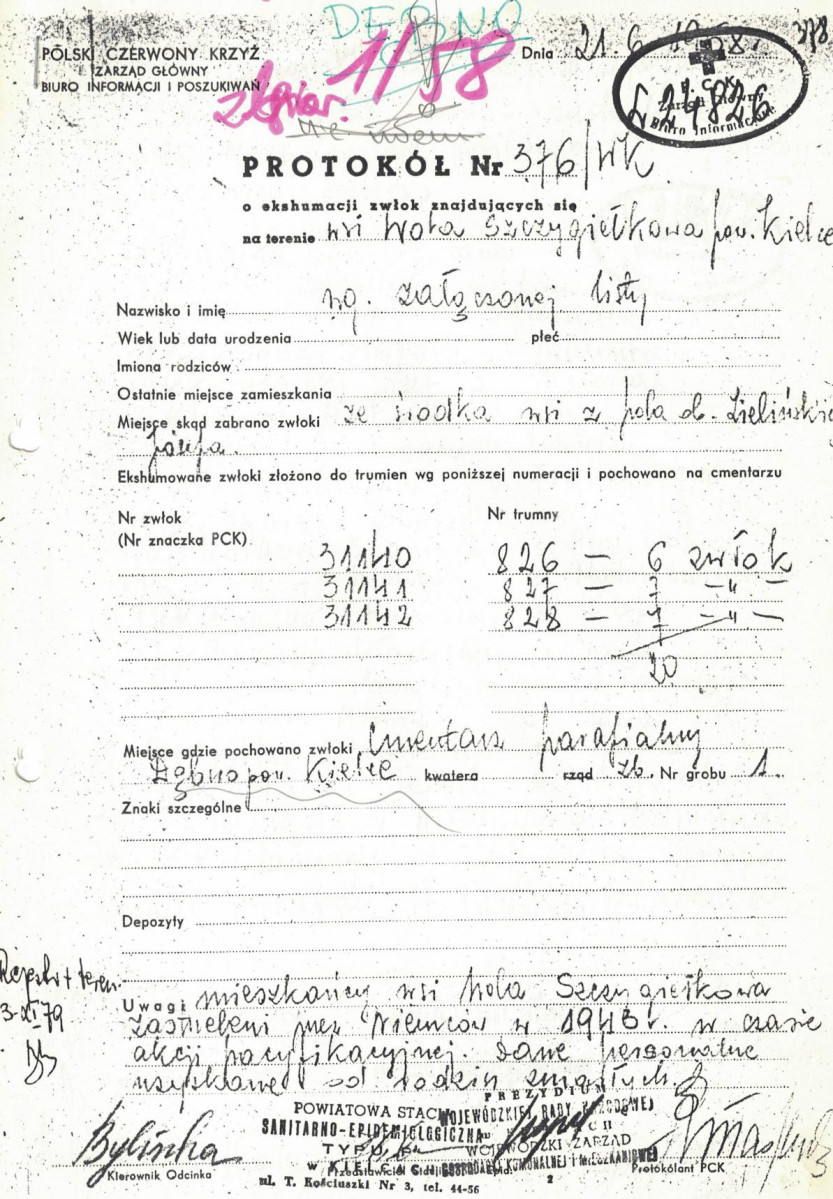 DĘBNO
378
POLSKI CZERWONY KRZYŻ
ZARZĄD GŁÓWNY
BIURO INFORMACJI I POSZUKIWAŃ
1/58
Dnia 21.6.1958 r.
zbior.
P.C.K.
Zarząd Główny
Biuro Informacyjne
24826
nie wiem
PROTOKÓŁ Nr 376/WK
o ekshumacji zwłok znajdujących się
na terenie wsi Wola Szczygiełkowa pow. Kielce
Nazwisko i imię wg. załączonej listy
Wiek lub data urodzenia płeć
Imiona rodziców
Ostatnie miejsce zamieszkania
Miejsce skąd zabrano zwłoki ze środka wsi z pola ob.
Józefa.
Ekshumowane zwłoki złożono do trumien wg poniższej numeracji i pochowano na cmentarzu
Nr zwłok Nr trumny
(Nr znaczka PCK)
31140 826 — 6 zwłok
31141 827 — 7 —"—
31142 828 — 7 —"—
20
Miejsce gdzie pochowano zwłoki Cmentarz parafialny
Dębno pow. Kielce kwatera rząd zb. Nr grobu 1.
Znaki szczególne
Depozyty
teren.
3-XI 79
Uwagi mieszkańcy wsi Wola Szczygiełkowa
zastrzeleni przez Niemców w 1943 r. w czasie
akcji pacyfikacyjnej. Dane personalne
uzyskane od rodzin zmarłych.
POWIATOWA STACJA
SANITARNO-EPIDEMIOLOGICZNA
W KIELCACH
ul. T. Kościuszki Nr 3, tel. 44-56
PREZYDIUM
WOJEWÓDZKIEJ RADY NARODOWEJ
WOJEWÓDZKI ZARZĄD
GOSPODARKI KOMUNALNEJ I MIESZKANIOWEJ
2
Bylińska
Kierownik Odcinka
Protokólant PCK
3